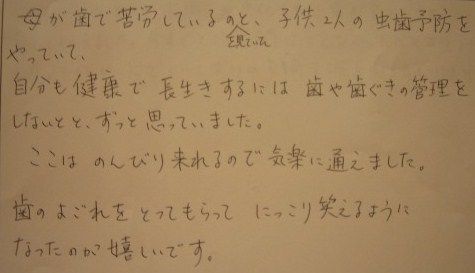 母が歯で苦労しているのを見ていたと、子供2人の虫歯予防を
やっていて、
自分も健康で長生きするには歯や歯ぐきの管理を
しないとと、ずっと思っていました。
ここはのんびり来れるので気楽に通えました。
歯のよごれをとってもらってにっこり笑えるように
なったのが嬉しいです。